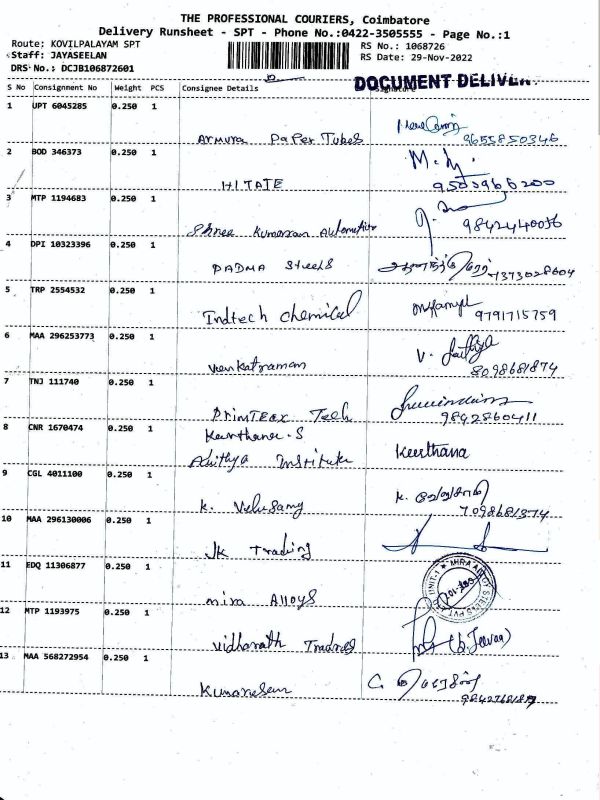 THE PROFESSIONAL COURIERS, Coimbatore
Delivery Runsheet - SPT - Phone No.:0422-3505555 - Page No.:1
Route; KOVILPALAYAM SPT
RS No.: 1068726
Staff: JAYASEELAN
RS Date: 29-Nov-2022
DRS No.: DCJB106872601
DOCUMENT DELIVER
S No Consignment No Weight PCS Consignee Details Signature
1 UPT 6045285 0.250 1
Armura Paper Tubes 9655850346
2 BOD 346373 0.250 1
HITATE 9500966200
3 MTP 1194683 0.250 1
Shree Kumaran Automotive 9842440056
4 DPI 10323396 0.250 1
PADMA Steels 7373028604
5 TRP 2554532 0.250 1
Indtech chemical 9791715759
6 MAA 296253773 0.250 1
Venkatraman V. Sathya
8098681874
7 TNJ 111740 0.250 1
Printeex Tech 9842860411
8 CNR 1670474 0.250 1
Keerthana.S
Adithya Institute Keerthana
9 CGL 4011100 0.250 1
K. Velusamy 7098681374
10 MAA 296130006 0.250 1
JK Trading
11 EDQ 11306877 0.250 1
mira Alloys
UNIT-1 ★ MIRA ALLOY STEELS PVT
12 MTP 1193975 0.250 1
Vidhanath Trades (S. Jeevaa)
13 MAA 568272954 0.250 1
Kumaresan